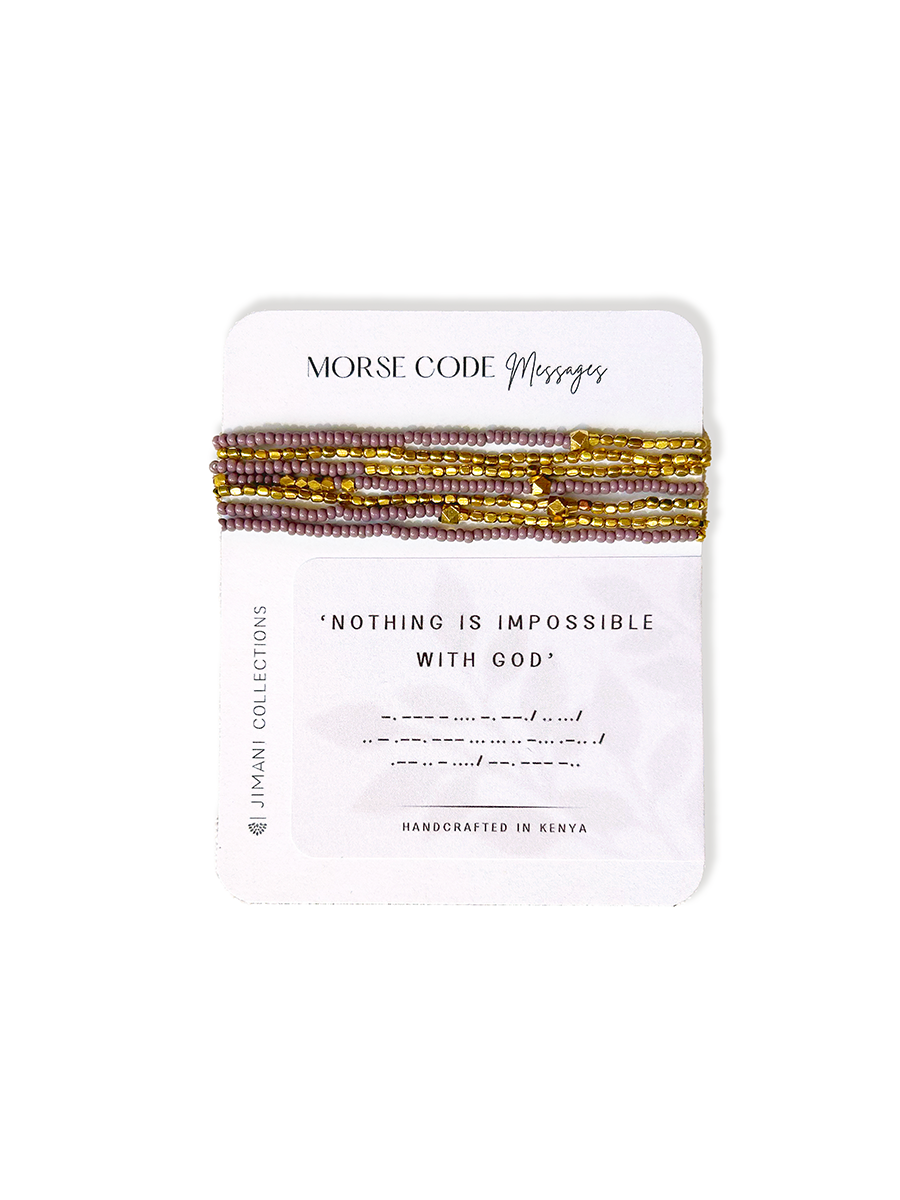 MORSE CODE Messages
‘NOTHING IS IMPOSSIBLE
WITH GOD’
–. ––– – .... –. ––./ .. .../
.. – .––. ––– ... ... .. –... .–.. ./
.–– .. – ..../ ––. ––– –..
HANDCRAFTED IN KENYA
JIMANI COLLECTIONS